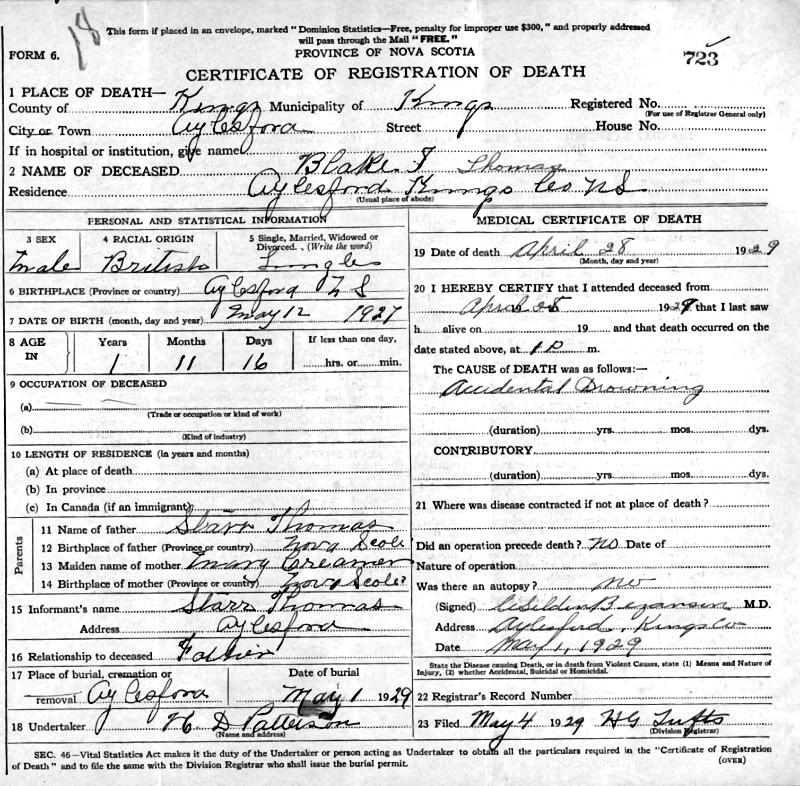 18
This form if placed in an envelope, marked "Dominion Statistics—Free, penalty for improper use $300," and properly addressed
will pass through the Mail "FREE."
FORM 6.
PROVINCE OF NOVA SCOTIA
723
CERTIFICATE OF REGISTRATION OF DEATH
1 PLACE OF DEATH—
County of Kings Municipality of Kings Registered No.
(For use of Registrar General only)
City or Town Aylesford Street House No.
If in hospital or institution, give name
2 NAME OF DECEASED Blake F Thomas
Residence Aylesford Kings Co NS
(Usual place of abode)
PERSONAL AND STATISTICAL INFORMATION
3 SEX 4 RACIAL ORIGIN 5 Single, Married, Widowed or
Divorced. . (Write the word)
male British Single
6 BIRTHPLACE (Province or country) Aylesford N S
7 DATE OF BIRTH (month, day and year) May 12 1927
8 AGE IN Years Months Days If less than one day,
1 11 16 hrs. or min.
9 OCCUPATION OF DECEASED
(a)
(Trade or occupation or kind of work)
(b)
(Kind of industry)
10 LENGTH OF RESIDENCE (in years and months)
(a) At place of death
(b) In province
(c) In Canada (if an immigrant)
Parents
11 Name of father Starr Thomas
12 Birthplace of father (Province or country) Nova Scotia
13 Maiden name of mother Mary Creamer
14 Birthplace of mother (Province or country) Nova Scotia
15 Informant's name Starr Thomas
Address Aylesford
16 Relationship to deceased Father
17 Place of burial, cremation or Date of burial
removal Aylesford May 1 1929
18 Undertaker H D Patterson
(Name and address)
MEDICAL CERTIFICATE OF DEATH
19 Date of death April 28 1929
(Month, day and year)
20 I HEREBY CERTIFY that I attended deceased from
April 28 1929 that I last saw
h alive on 19 and that death occurred on the
date stated above, at 1 P m.
The CAUSE of DEATH was as follows:
Accidental Drowning
(duration) yrs. mos. dys.
CONTRIBUTORY
(duration) yrs. mos. dys.
21 Where was disease contracted if not at place of death?
Did an operation precede death? No Date of
Nature of operation
Was there an autopsy? no
(Signed) Bezanson M.D.
Address Aylesford, Kings Co
Date May 1, 1929
State the Disease causing Death, or in death from Violent Causes, state (1) Means and Nature of
Injury, (2) whether Accidental, Suicidal or Homicidal.
22 Registrar's Record Number
23 Filed May 4 1929 H G Tufts
(Division Registrar)
SEC. 46—Vital Statistics Act makes it the duty of the Undertaker or person acting as Undertaker to obtain all the particulars required in the "Certificate of Registration
of Death" and to file the same with the Division Registrar who shall issue the burial permit.
(OVER)